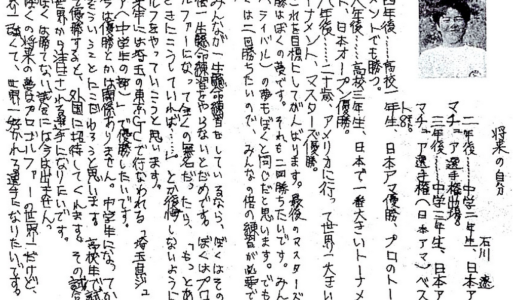 将来の自分
石川 遼
二年後………中学二年生、日本ア
マチュア選手権出場。
三年後………中学三年生、日本ア
マチュア選手権(日本アマ)ベス
ト8。
四年後………高校一年生、日本アマ優勝、プロのトー
メントでも勝つ。
六年後………高校三年生、日本で一番大きいトーナメ
ント、日本オープン優勝。
八年後………二十歳、アメリカに行って世界一大きい
ーナメント、マスターズ優勝。
これを目標にしてがんばります。最後のマスターズ
勝はぼくの夢です。それも二回勝ちたいです。みん
(ライバル)の夢もぼくと同じだと思います。でも
くは二回勝ちたいので、みんなの倍の練習が必要で
みんなが一生懸命練習をしているなら、ぼくはその
一生懸命練習をやらないとだめです。ぼくはプロ
ルファーになって全くの無名だったら、「もっとあ
ときにこうしていれば……」とか後悔しないように
ルフをやっていこうと思います。
来年には埼玉の東京GCで行なわれる「埼玉県ジュ
ア(中学生の部)」で優勝したいです。
は優勝とか関係ありません。中学生になってか
そういうことにこだわろうと思います。高校生で試
で優勝すると、外国に招待してくれます。その試合
世界から注目される選手になりたいです。
ぼくは勝てない、実力には今は出ません。
ぼくの将来の夢はプロゴルファーの世界一だけど、
世界一好かれる選手になりたいです。